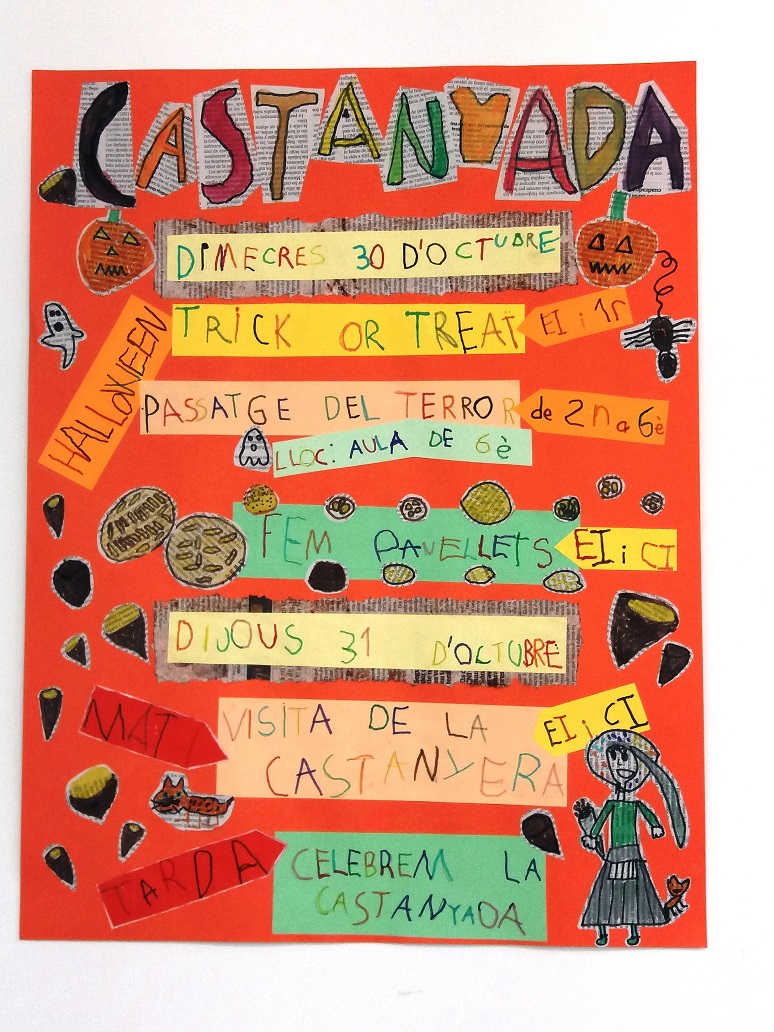 CASTANYADA
DIMECRES 30 D'OCTUBRE
HALLOWEEN
TRICK OR TREAT
EI i 1r
PASSATGE DEL TERROR
de 2n a 6è
LLOC: AULA DE 6è
FEM PANELLETS
EI i CI
DIJOUS 31 D'OCTUBRE
MATI
VISITA DE LA
CASTANYERA
EI i CI
TARDA
CELEBREM LA
CASTANYADA